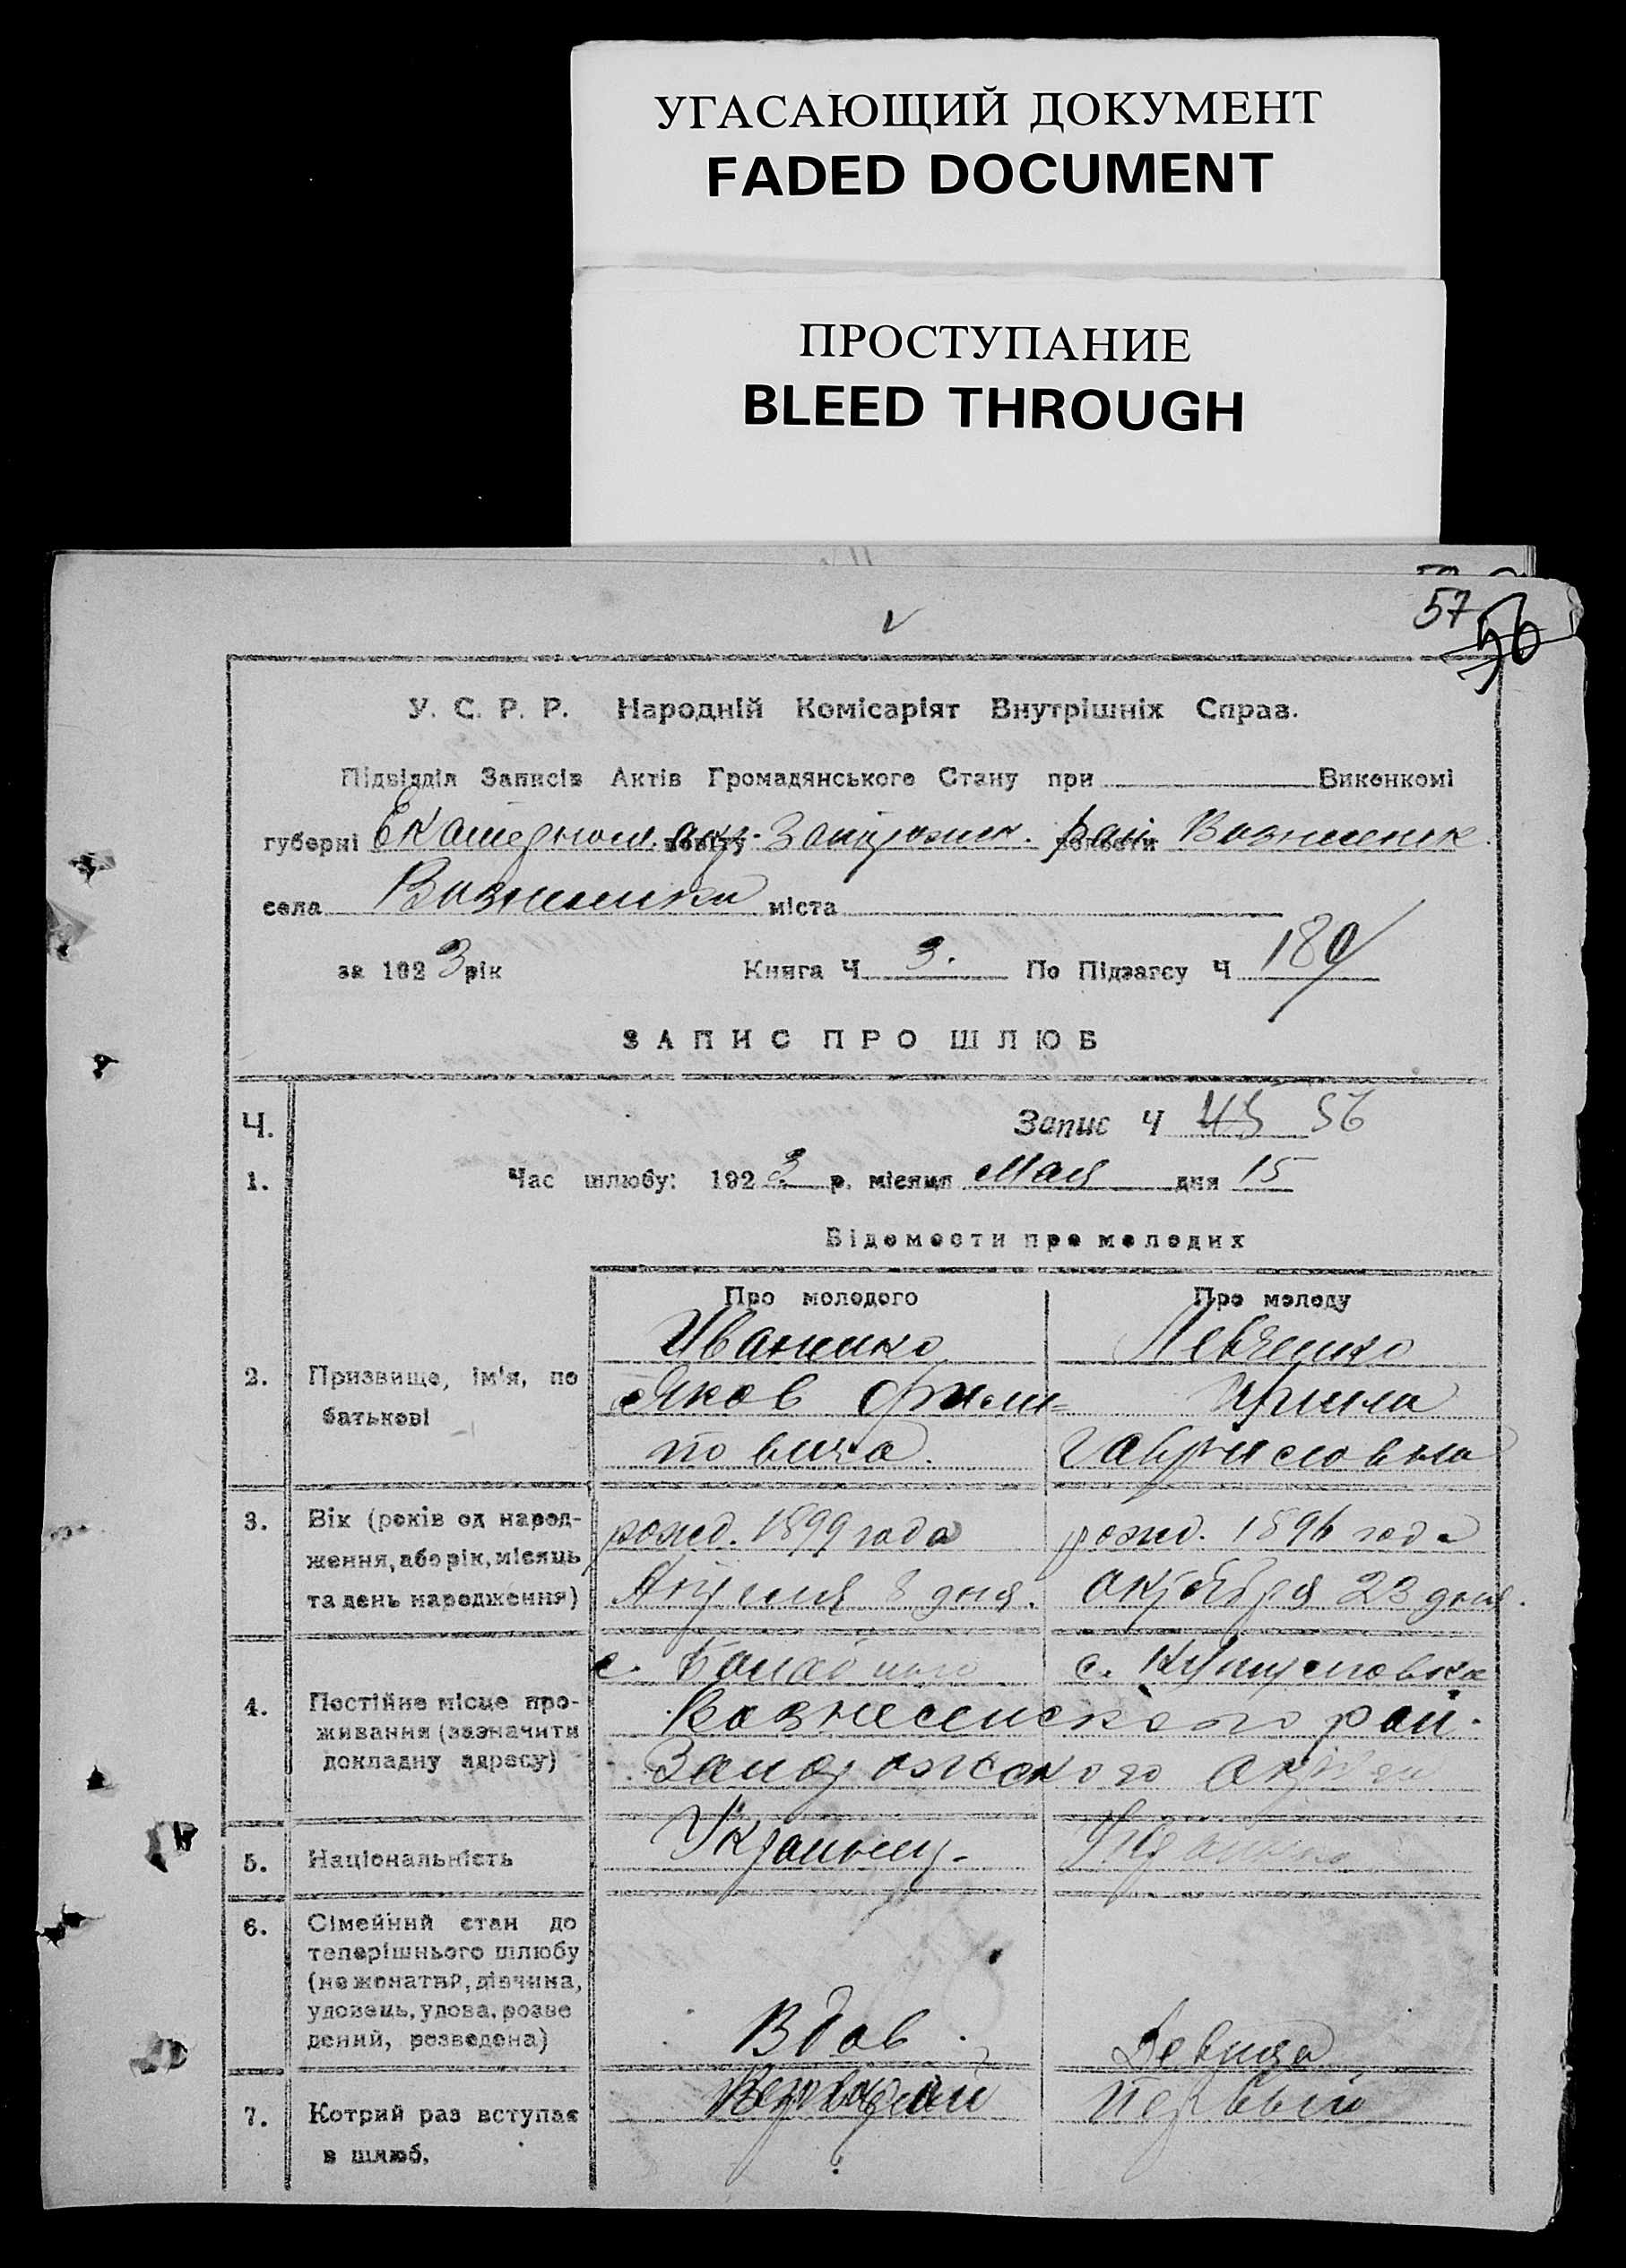 УГАСАЮЩИЙ ДОКУМЕНТ
FADED DOCUMENT
ПРОСТУПАНИЕ
BLEED THROUGH
57 56
У. С. Р. Р. Народній Комісаріят Внутрішніх Справ.
Підвідділ Записів Актів Громадянського Стану при Виконкомі
губерні Екатериносл. повіту окр. Запорожск. волости рай Вознесенск.
села Вознесенка міста
за 1923 рік Книга Ч 3. По Підзагсу Ч 189
ЗАПИС ПРО ШЛЮБ
Ч. Запис Ч 45 56
1. Час шлюбу: 1923 р. місяця Мая дня 15
Відомости про молодих
Про молодого Про молоду
Иваненко Левченко
2. Призвище, ім'я, по батькові
Яков Фили= Ирина
повича. Гавриловна
3. Вік (років од народження, або рік, місяць та день народження)
рожд. 1899 года рожд. 1896 года
Апреля 8 дня. октября 23 дня.
с. Балабино с. Кушугумовка
4. Постійне місце проживання (зазначити докладну адресу)
Вознесенского рай.
Запорожского округа
5. Національність Украинец. Украинка
6. Сімейний стан до
теперішнього шлюбу
(не жонатий, дівчина,
удовець, удова, розве
дений, розведена) Вдов. Девица
7. Котрий раз вступає Первый
в шлюб.